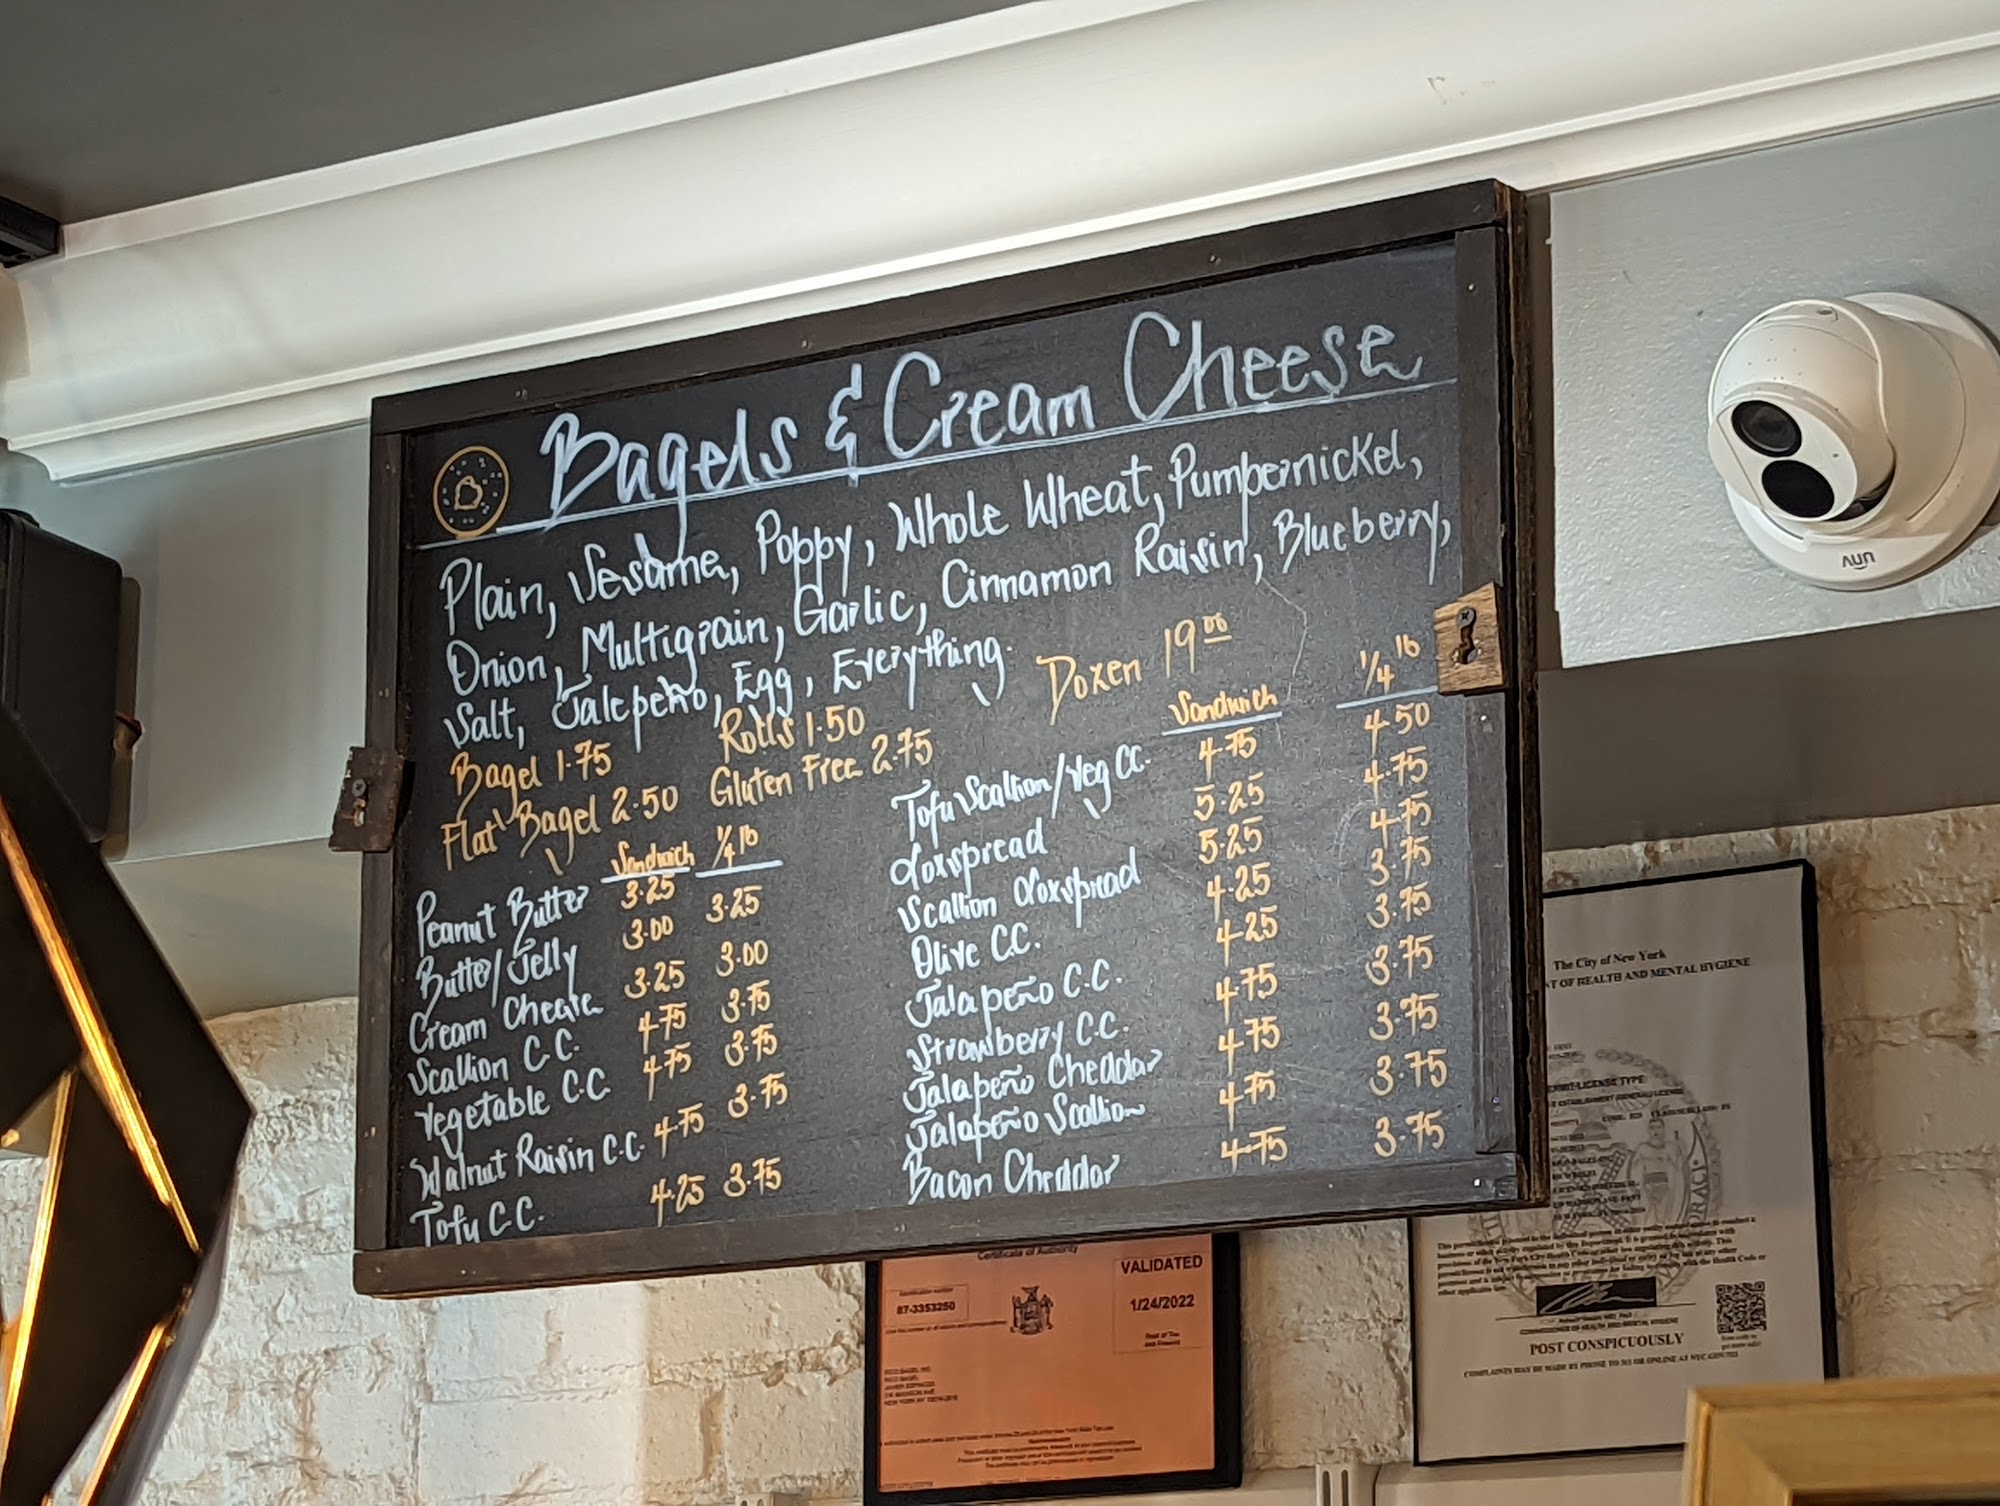 Bagels & Cream Cheese
Plain, Sesame, Poppy, Whole Wheat, Pumpernickel,
Onion, Multigrain, Garlic, Cinnamon Raisin, Blueberry,
Salt, Jalepeño, Egg, Everything.
Bagel 1.75 Rolls 1.50 Dozen 19.00
Flat Bagel 2.50 Gluten Free 2.75
Sandwich 1/4 lb
Peanut Butter 3.25 3.25
Butter/Jelly 3.00 3.00
Cream Cheese 3.25 3.75
Scallion C.C. 4.75 3.75
Vegetable C.C. 4.75 3.75
Walnut Raisin C.C. 4.75 3.75
Tofu C.C. 4.25
Sandwich 1/4 lb
Tofu Scallion/Veg CC. 4.75 4.50
Loxspread 5.25 4.75
Scallion Loxspread 5.25 4.75
Olive C.C. 4.25 3.75
Jalapeño C.C. 4.25 3.75
Strawberry C.C. 4.75 3.75
Jalapeño Cheddar 4.75 3.75
Jalapeño Scallion 4.75 3.75
Bacon Cheddar 4.75 3.75
UNV
The City of New York
OF HEALTH AND MENTAL HYGIENE
POST CONSPICUOUSLY
COMPLAINTS MAY BE MADE BY PHONE TO 311 OR ONLINE AT NYC.GOV/311
Certificate of Authority
Identification number
87-3353250
VALIDATED
1/24/2022
Dept of Tax
and Finance
NEW YORK NY